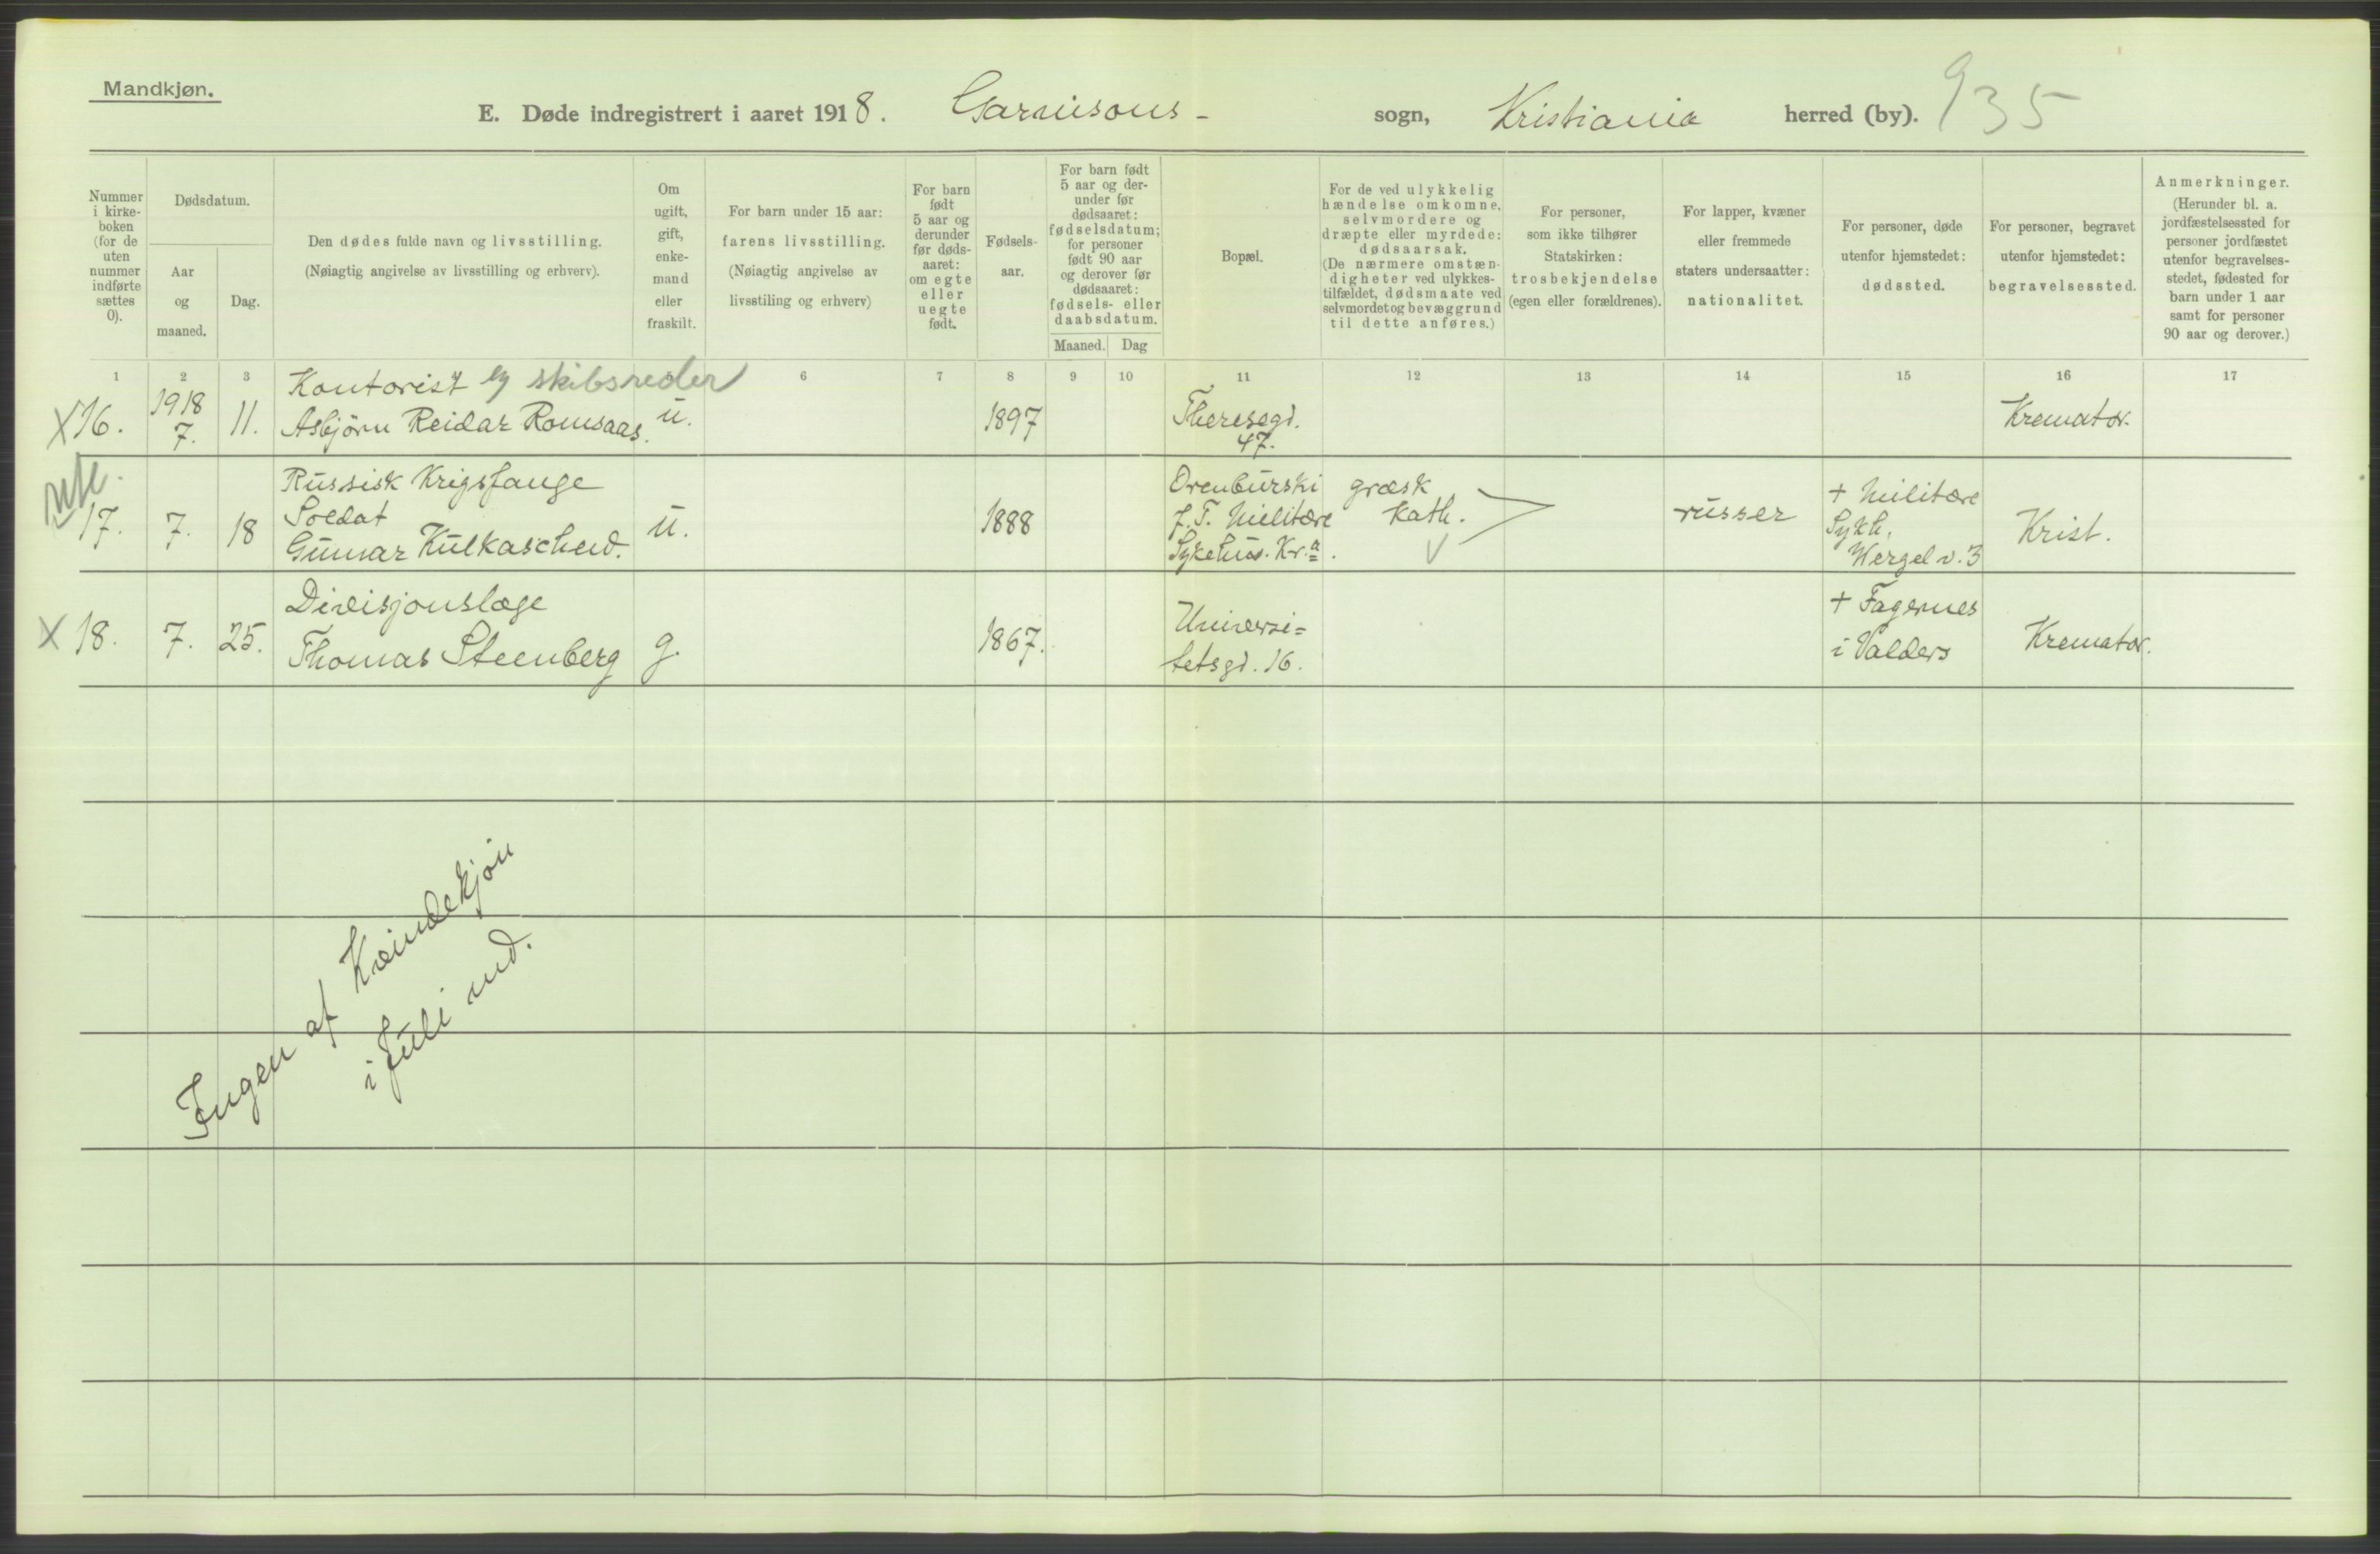 Mandkjøn.
E. Døde indregistrert i aaret 1918. Garnisons- sogn, Kristiania herred (by). 935
Nummer i kirke-boken (for de uten nummer indførte sættes 0).
Dødsdatum.
Aar og maaned.
Dag.
Den dødes fulde navn og livsstilling.
(Nøiagtig angivelse av livsstilling og erhverv).
Om ugift, gift, enke-mand eller fraskilt.
For barn under 15 aar:
farens livsstilling.
(Nøiagtig angivelse av
livsstiling og erhverv)
For barn født 5 aar og derunder før døds-aaret: om egte eller uegte født.
Fødsels-aar.
For barn født 5 aar og der-under før dødsaaret: fødselsdatum; for personer født 90 aar og derover før dødsaaret: fødsels- eller daabsdatum.
Maaned. Dag
Bopæl.
For de ved ulykkelig hændelse omkomne, selvmordere og dræpte eller myrdede: dødsaarsak. (De nærmere omstæn-digheter ved ulykkes-tilfældet, dødsmaate ved selvmordet og bevæggrund til dette anføres.)
For personer, som ikke tilhører Statskirken: trosbekjendelse (egen eller forældrenes).
For lapper, kvæner eller fremmede staters undersaatter: nationalitet.
For personer, døde utenfor hjemstedet: dødssted.
For personer, begravet utenfor hjemstedet: begravelsessted.
Anmerkninger. (Herunder bl. a. jordfæstelsessted for personer jordfæstet utenfor begravelses-stedet, fødested for barn under 1 aar samt for personer 90 aar og derover.)
1 2 3 6 7 8 9 10 11 12 13 14 15 16 17
Kontorist skibsreder
X 16. 1918 7. 11. Asbjörn Reidar Romsaas. u. 1897 Theresegd. 47. Kremator.
Russisk Krigsfange
Soldat
17. 7. 18 Gunnar Kulkascheid. u. 1888 Orenburski
f. T. Militære
Sykehus. Kr.a.
græsk
Kath. V
russer
+ Militære
Sykh.
Wergel. v. 3
Krist.
Divisjonslæge
X 18. 7. 25. Thomas Steenberg g. 1867. Universi=
tetsgd. 16.
+ Fagernes
i Valders
Kremator.
Ingen af Kvindekjön
i Juli md.